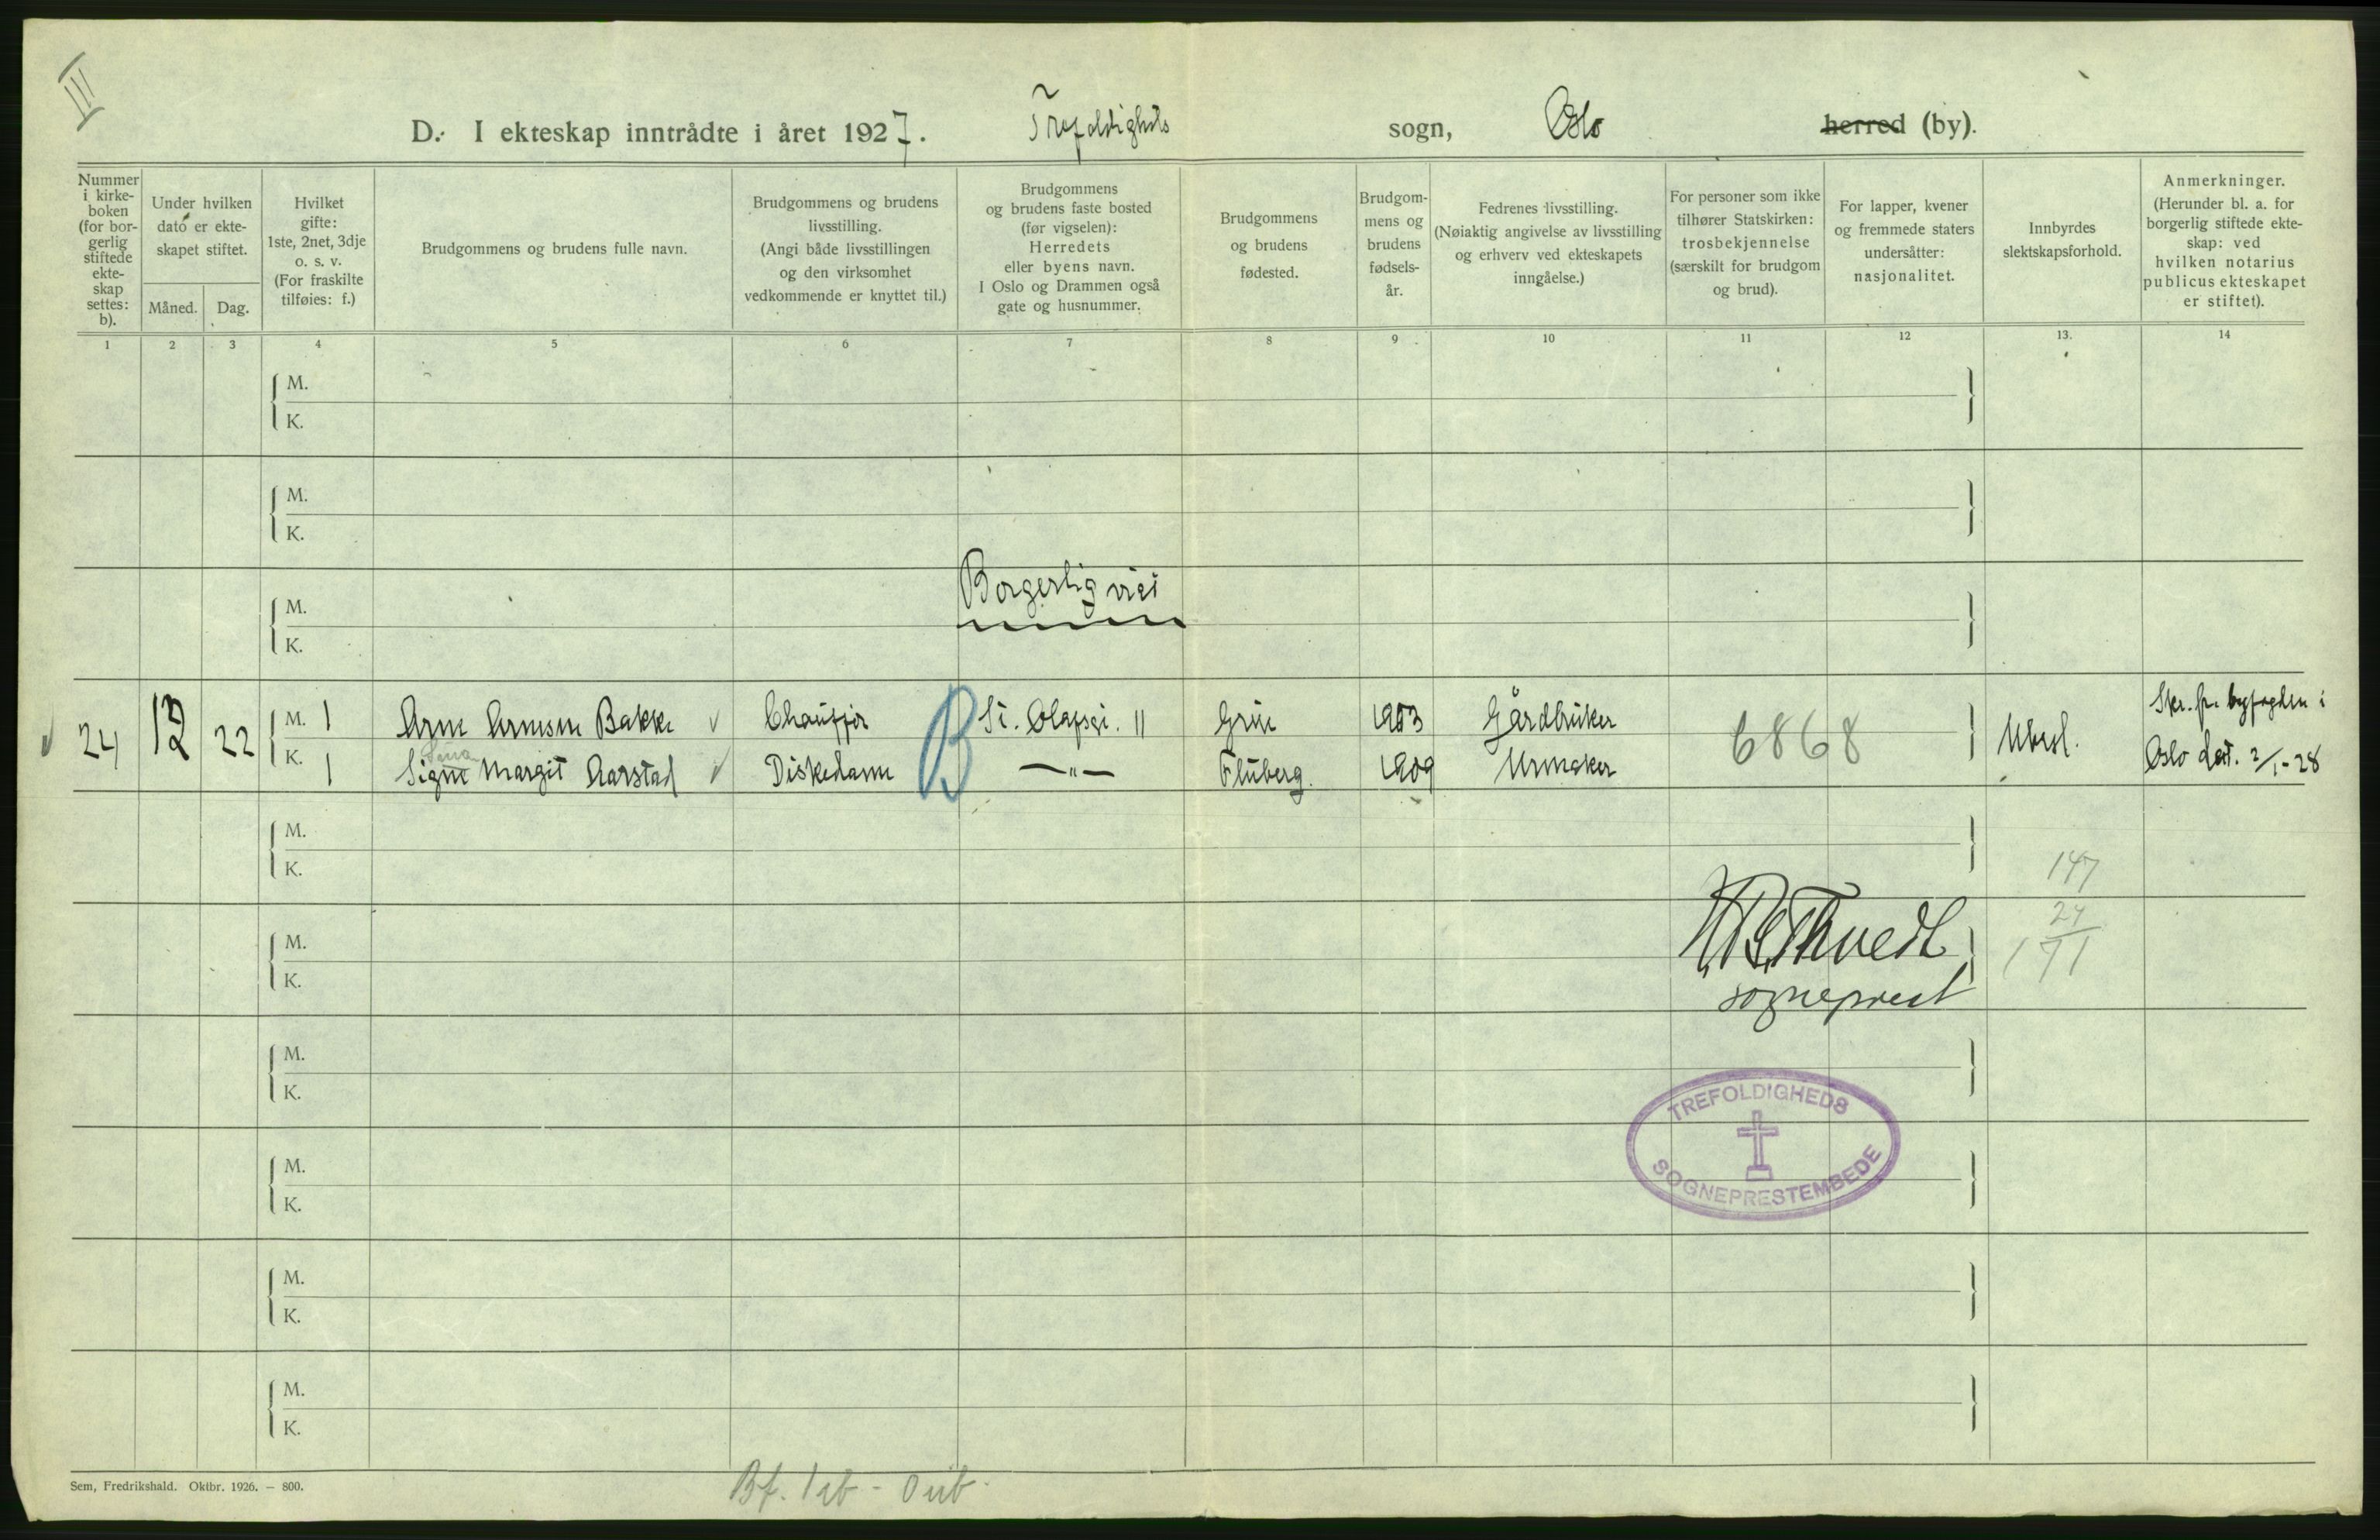 III
D. I ekteskap inntrådte i året 1927. Trefoldighets sogn, Oslo herred (by).
Nummer i kirke-boken (for bor-gerlig stiftede ekte-skap settes: b).
Under hvilken dato er ekte-skapet stiftet.
Måned. Dag.
Hvilket gifte: 1ste, 2net, 3dje o. s. v. (For fraskilte tilføies: f.)
Brudgommens og brudens fulle navn.
Brudgommens og brudens livsstilling. (Angi både livsstillingen og den virksomhet vedkommende er knyttet til.)
Brudgommens og brudens faste bosted (før vigselen): Herredets eller byens navn. I Oslo og Drammen også gate og husnummer.
Brudgommens og brudens fødested.
Brudgom-mens og brudens fødsels-år.
Fedrenes livsstilling. (Nøiaktig angivelse av livsstilling og erhverv ved ekteskapets inngåelse.)
For personer som ikke tilhører Statskirken: trosbekjennelse (særskilt for brudgom og brud).
For lapper, kvener og fremmede staters undersåtter: nasjonalitet.
Innbyrdes slektskapsforhold.
Anmerkninger. (Herunder bl. a. for borgerlig stiftede ekte-skap: ved hvilken notarius publicus ekteskapet er stiftet).
1 2 3 4 5 6 7 8 9 10 11 12 13. 14
M.
K.
M.
K.
Borgerlig viet
M.
K.
24 12 22
M. 1 Arne Arnesen Bakke Chauffør St. Olafsgt. 11 Grue 1903 Gårdbruker
K. 1 Signe Margit Aarstad Diskedame —"— Fluberg. 1909 Urmaker
B 6868 Ubesl.
Skr. fra byfogden i
Oslo dat. 2/1-28
M.
K.
147
24
171
M.
K.
sogneprest
M.
K.
TREFOLDIGHEDS
SOGNEPRESTEMBEDE
M.
K.
M.
K.
M.
K.
Sem, Fredrikshald. Oktbr. 1926. — 800.